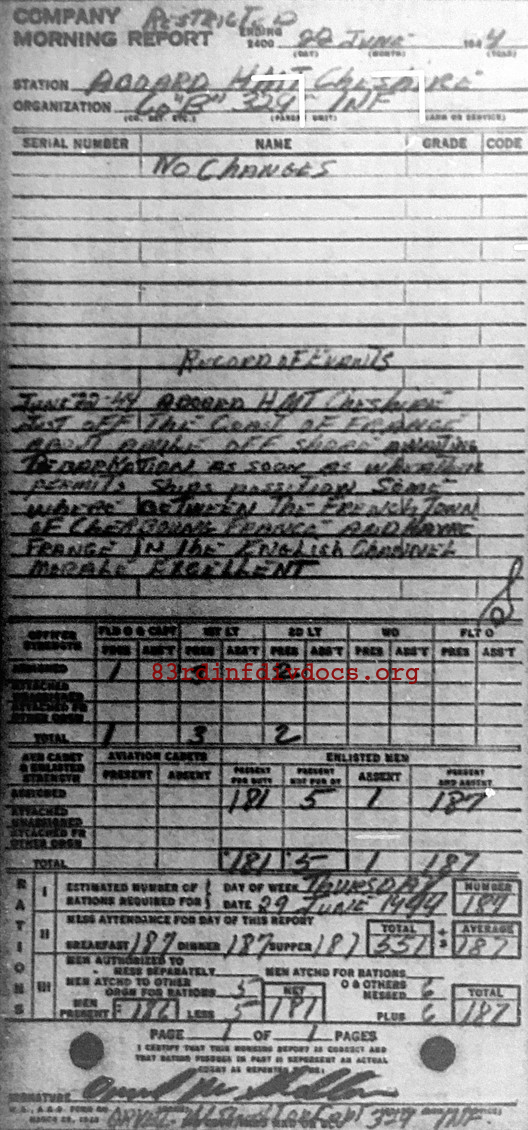 COMPANY RESTRICTED
MORNING REPORT ENDING 2400 22 JUNE 1944
(DAY) (MONTH) (YEAR)
STATION ABOARD HMT CHESHIRE
ORGANIZATION Co "B" 329 INF
SERIAL NUMBER NAME GRADE CODE
NO CHANGES
RECORD OF EVENTS
JUNE 22-44 ABOARD HMT CHESHIRE
JUST OFF THE COAST OF FRANCE
ABOUT A MILE OFF SHORE AWAITING
DEBARKATION AS SOON AS WEATHER
PERMITS SHIPS POSSITION SOME
WHERE BETWEEN THE FRENCH TOWN
OF FRANCE AND HAVRE
FRANCE IN THE ENGLISH CHANNEL
MORALE EXCELLENT
OFFICER STRENGTH FLD O & CAPT 1ST LT 2D LT WO FLT O
PRES ABS'T PRES ABS'T PRES ABS'T PRES ABS'T PRES ABS'T
ASSIGNED 1 3 2
83rdinfdivdocs.org
ATTACHED UNASSIGNED
ATTACHED FR OTHER ORGN
TOTAL 1 3 2
AVN CADET & ENLISTED STRENGTH AVIATION CADETS ENLISTED MEN
PRESENT ABSENT PRESENT FOR DUTY PRESENT NOT FOR DY ABSENT PRESENT AND ABSENT
ASSIGNED 181 5 1 187
ATTACHED UNASSIGNED
ATTACHED FR OTHER ORGN
TOTAL 181 5 1 187
RATIONS
I ESTIMATED NUMBER OF RATIONS REQUIRED FOR DAY OF WEEK THURSDAY NUMBER
DATE 29 JUNE 1944 187
II MESS ATTENDANCE FOR DAY OF THIS REPORT TOTAL ÷ 3 AVERAGE
BREAKFAST 187 DINNER 187 SUPPER 187 187
III MEN AUTHORIZED TO MESS SEPARATELY MEN ATCHD FOR RATIONS
MEN ATCHD TO OTHER ORGN FOR RATIONS 5 NET O & OTHERS MESSED 6 TOTAL
MEN PRESENT LESS 5 181 PLUS 6 187
PAGE 1 OF 1 PAGES
I CERTIFY THAT THIS MORNING REPORT IS CORRECT AND
THAT RATION FIGURES IN PART III REPRESENT AN ACTUAL
COUNT AS REPORTED
SIGNATURE
329 INF